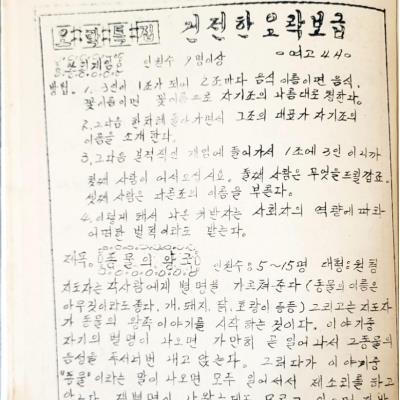 오락특집 건전한 오락보급
인원수 9명이상 여고 44
방법. 1. 3인이 1조가 되어 2조마다 음식 이름이면 음식,
꽃이름이면 꽃이름으로 자기조의 나름대로 정한다.
2. 그다음 한차례 돌아가면서 그조의 대표가 자기조의
이름을 소개한다.
3. 그다음 본격적인 게임에 들어가서 1조에 3인이니까
첫째 사람이 어서오십시요. 둘째 사람은 무엇을 드릴깝죠.
셋째 사람은 다른조의 이름을 부른다.
4. 이렇게 돼서 나온 사람은 사회자의 역량에 따라
어떠한 벌칙이라도 받는다.
제목. 동물의 왕국 인원수: 5~15명 대형: 원형
지도자는 각사람에게 별명을 가르쳐준다 (동물의 이름은
아무것이라도좋다. 개, 돼지, 닭, 호랑이 등등) 그리고는 지도자
가 동물의 왕국 이야기를 시작하는 것이다. 이야기중
자기의 별명이 나오면 가만히 곧 일어나서 그동물의
음성을 두서너번 내고 앉는다. 그러다가 이야기중
"동물"이라는 말이 나오면 모두 일어서서 제소리를 하고